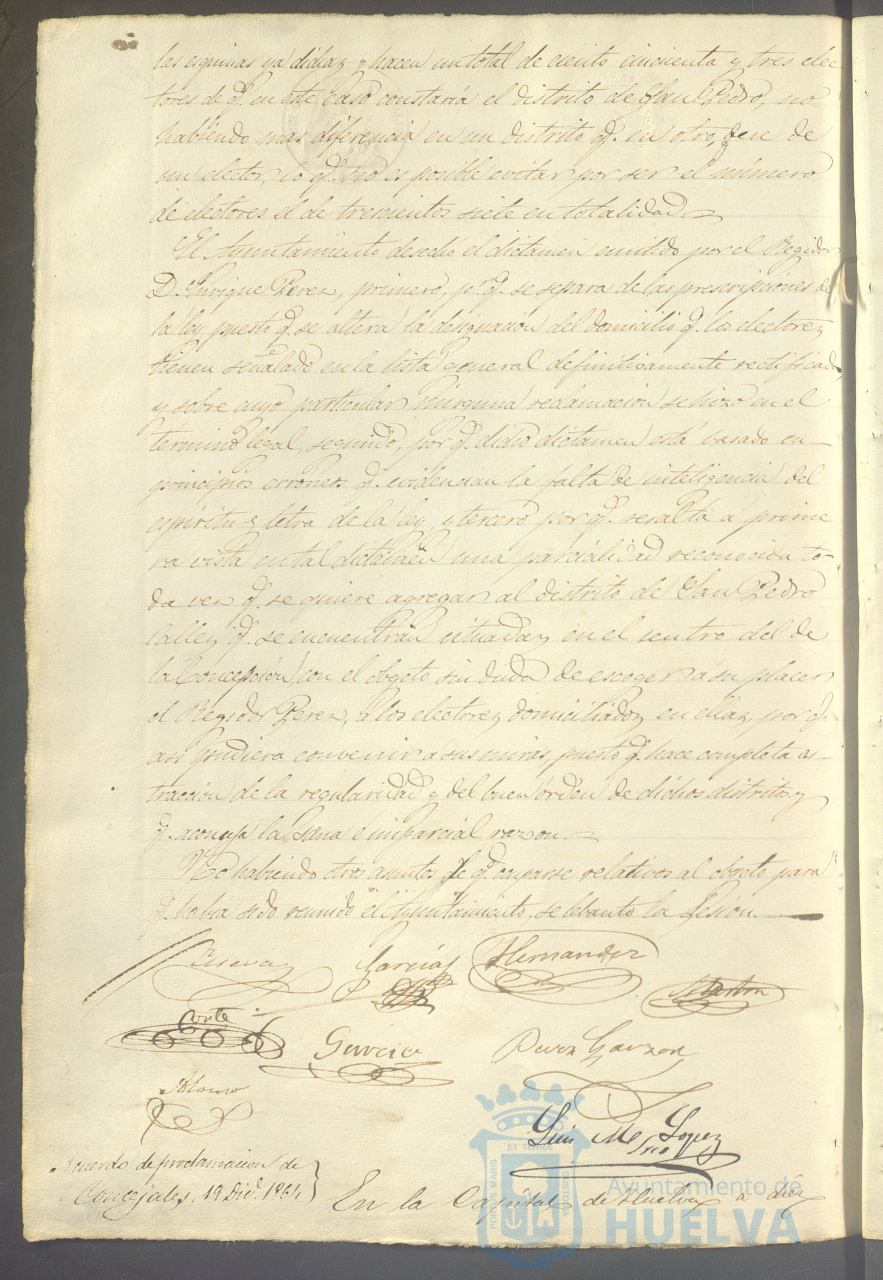 las esquinas ya dichas y hacen un total de ciento cincuenta y tres elec
tores de q.e en este caso constaria el distrito de San Pedro, no
habiendo mas diferencia en un distrito q.e en otro, que de
un elector, lo q.e no es posible evitar por ser el número
de electores el de trescientos siete en totalidad.
El Ayuntamiento desechó el dictamen emitido por el Regidor
D. Enrique Perez, primero, p.r q.e se separa de las prescripciones de
la ley puesto q.e se altera la designacion del domicilio q.e los electores
tienen señalado en la lista general definitivamente rectificada,
y sobre cuyo particular ninguna reclamacion se hizo en el
termino legal, segundo, por q.e dicho dictamen está basado en
principios erroneos q.e evidencian la falta de inteligencia del
espíritu y letra de la ley, y tercero por q.e resalta á prime
ra vista en tal dictamen una parcialidad reconocida to-
da vez q.e se quiere agregar al distrito de San Pedro
calles q.e se encuentran situadas en el sentro del de
la Concepción con el obgeto sin duda de escoger á su placer
el Regidor Perez, a los electores domiciliados en ellas, por q.e
asi pudiera convenir á sus miras, puesto q.e hace completa as-
traccion de la regularidad y del buen órden de dichos distritos
q.e aconseja la sana é imparcial razon.
No habiendo otros asuntos de q.e ocuparse relativos al obgeto para
q.e habia sido reunido el Ayuntamiento, se lebantó la Sesion.
Cueva Garcia Hernandez
Martin
Corte Garcia Perez Garzon
Alonso
Luis M. Lopez
Srio
Acuerdo de proclamacion de
Concejales. 19 Dic.e 1864
En la Capital de Huelva a diez
PORTUS MARIS ET TERRAE CUSTODIA
Ayuntamiento de
HUELVA